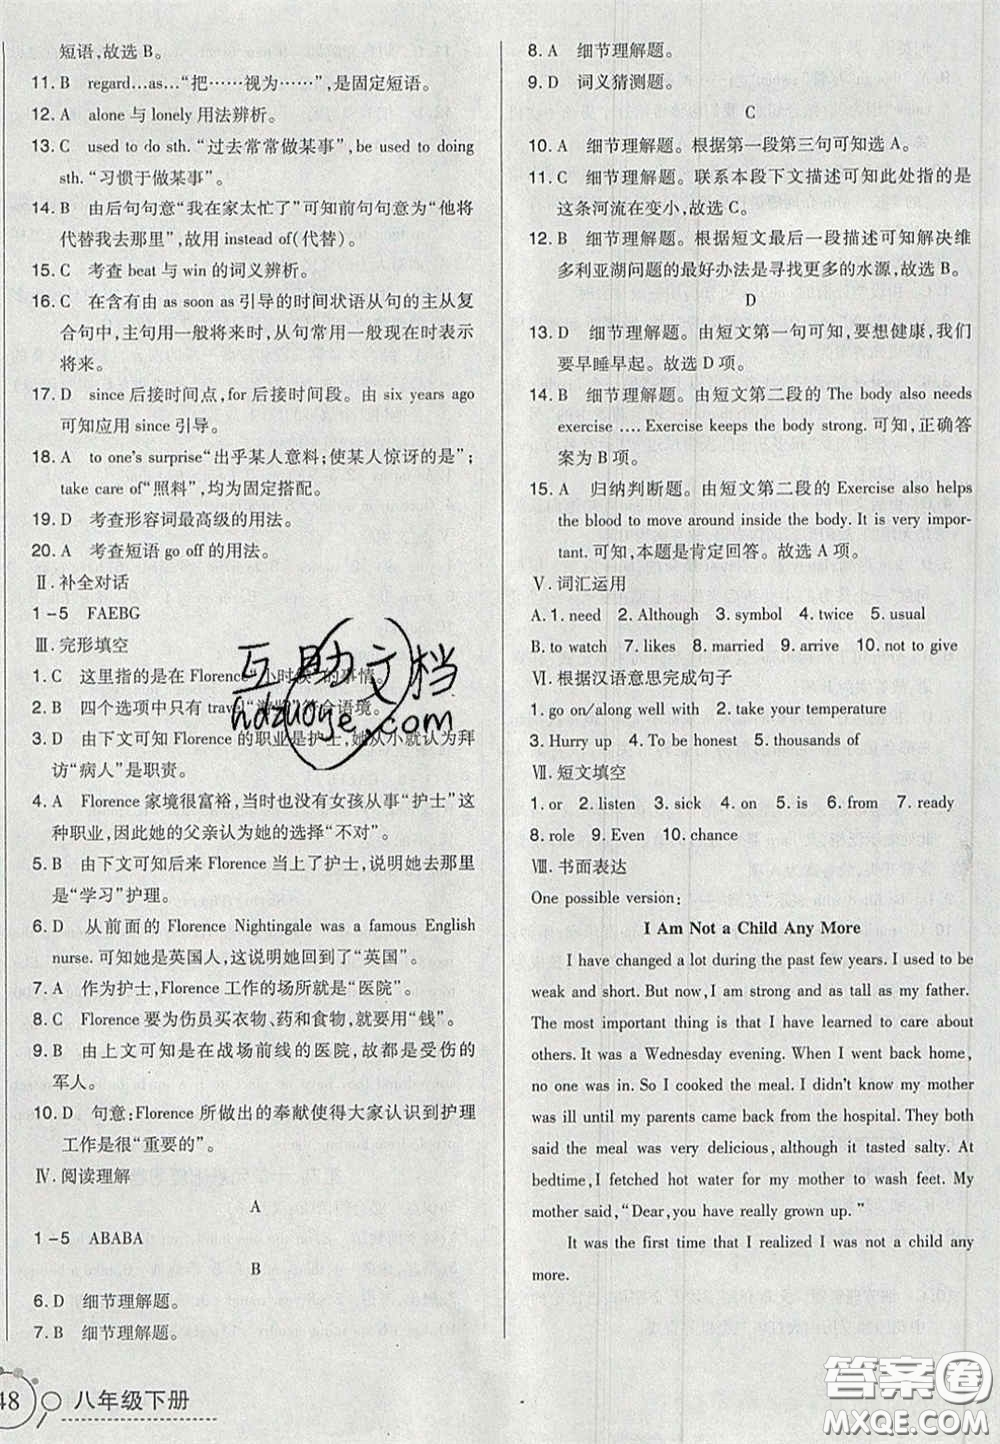 短语,故选 B。
11. B regard…as…“把……视为……”,是固定短语。
12. A alone 与 lonely 用法辨析。
13. C used to do sth.“过去常常做某事”, be used to doing
sth.“习惯于做某事”。
14. B 由后句句意“我在家太忙了”可知前句句意为“他将
代替我去那里”,故用 instead of(代替)。
15. C 考查 beat 与 win 的词义辨析。
16. C 在含有由 as soon as 引导的时间状语从句的主从复
合句中,主句用一般将来时,从句常用一般现在时表示
将来。
17. D since 后接时间点, for 后接时间段。由 six years ago
可知应用 since 引导。
18. A to one's surprise“出乎某人意料;使某人惊讶的是”;
take care of“照料”,均为固定搭配。
19. D 考查形容词最高级的用法。
20. A 考查短语 go off 的用法。
Ⅱ. 补全对话
1-5 FAEBG
Ⅲ. 完形填空
1. C 这里指的是在 Florence“小时候”的事情。
2. B 四个选项中只有 travel 符合语境。
3. D 由下文可知 Florence 的职业是护士,她从小就认为拜
访“病人”是职责。
4. A Florence 家境很富裕,当时也没有女孩从事“护士”这
种职业,因此她的父亲认为她的选择“不对”。
5. B 由下文可知后来 Florence 当上了护士,说明她去那里
是“学习”护理。
6. D 从前面的 Florence Nightingale was a famous English
nurse. 可知她是英国人,这说明她回到了“英国”。
7. A 作为护士, Florence 工作的场所就是“医院”。
8. C Florence 要为伤员买衣物、药和食物,就需要用“钱”。
9. B 由上文可知是在战场前线的医院,故都是受伤的
军人。
10. D 句意:Florence 所做出的奉献使得大家认识到护理
工作是很“重要的”。
Ⅳ. 阅读理解
A
1-5 ABABA
B
6. D 细节理解题。
7. B 细节理解题。
48 八年级下册
8. A 细节理解题。
9. D 词义猜测题。
C
10. A 细节理解题。根据第一段第三句可知选 A。
11. C 细节理解题。联系本段下文描述可知此处指的是
这条河流在变小,故选 C。
12. B 细节理解题。根据短文最后一段描述可知解决维
多利亚湖问题的最好办法是寻找更多的水源,故选 B。
D
13. D 细节理解题。由短文第一句可知,要想健康,我们
要早睡早起。故选 D 项。
14. B 细节理解题。由短文第二段的 The body also needs
exercise .... Exercise keeps the body strong. 可知,正确答
案为 B 项。
15. A 归纳判断题。由短文第二段的 Exercise also helps
the blood to move around inside the body. It is very impor-
tant. 可知,本题是肯定回答。故选 A 项。
Ⅴ. 词汇运用
A. 1. need 2. Although 3. symbol 4. twice 5. usual
B. 6. to watch 7. likes 8. married 9. working 10. not to give
Ⅵ. 根据汉语意思完成句子
1. go on/along well with 2. take your temperature
3. Hurry up 4. To be honest 5. thousands of
Ⅶ. 短文填空
1. or 2. listen 3. sick 4. on 5. but 6. from 7. ready
8. role 9. Even 10. chance
Ⅷ. 书面表达
One possible version:
I Am Not a Child Any More
I have changed a lot during the past few years. I used to be
weak and short. But now, I am strong and as tall as my father.
The most important thing is that I have learned to care about
others. It was a Wednesday evening. When I went back home,
no one was in. So I cooked the meal. I didn't know my mother
was ill until my parents came back from the hospital. They both
said the meal was very delicious, although it tasted salty. At
bedtime, I fetched hot water for my mother to wash feet. My
mother said, "Dear, you have really grown up."
It was the first time that I realized I was not a child any
more.
互助文档
hdzuoye.com
答案圈
MXQE.COM